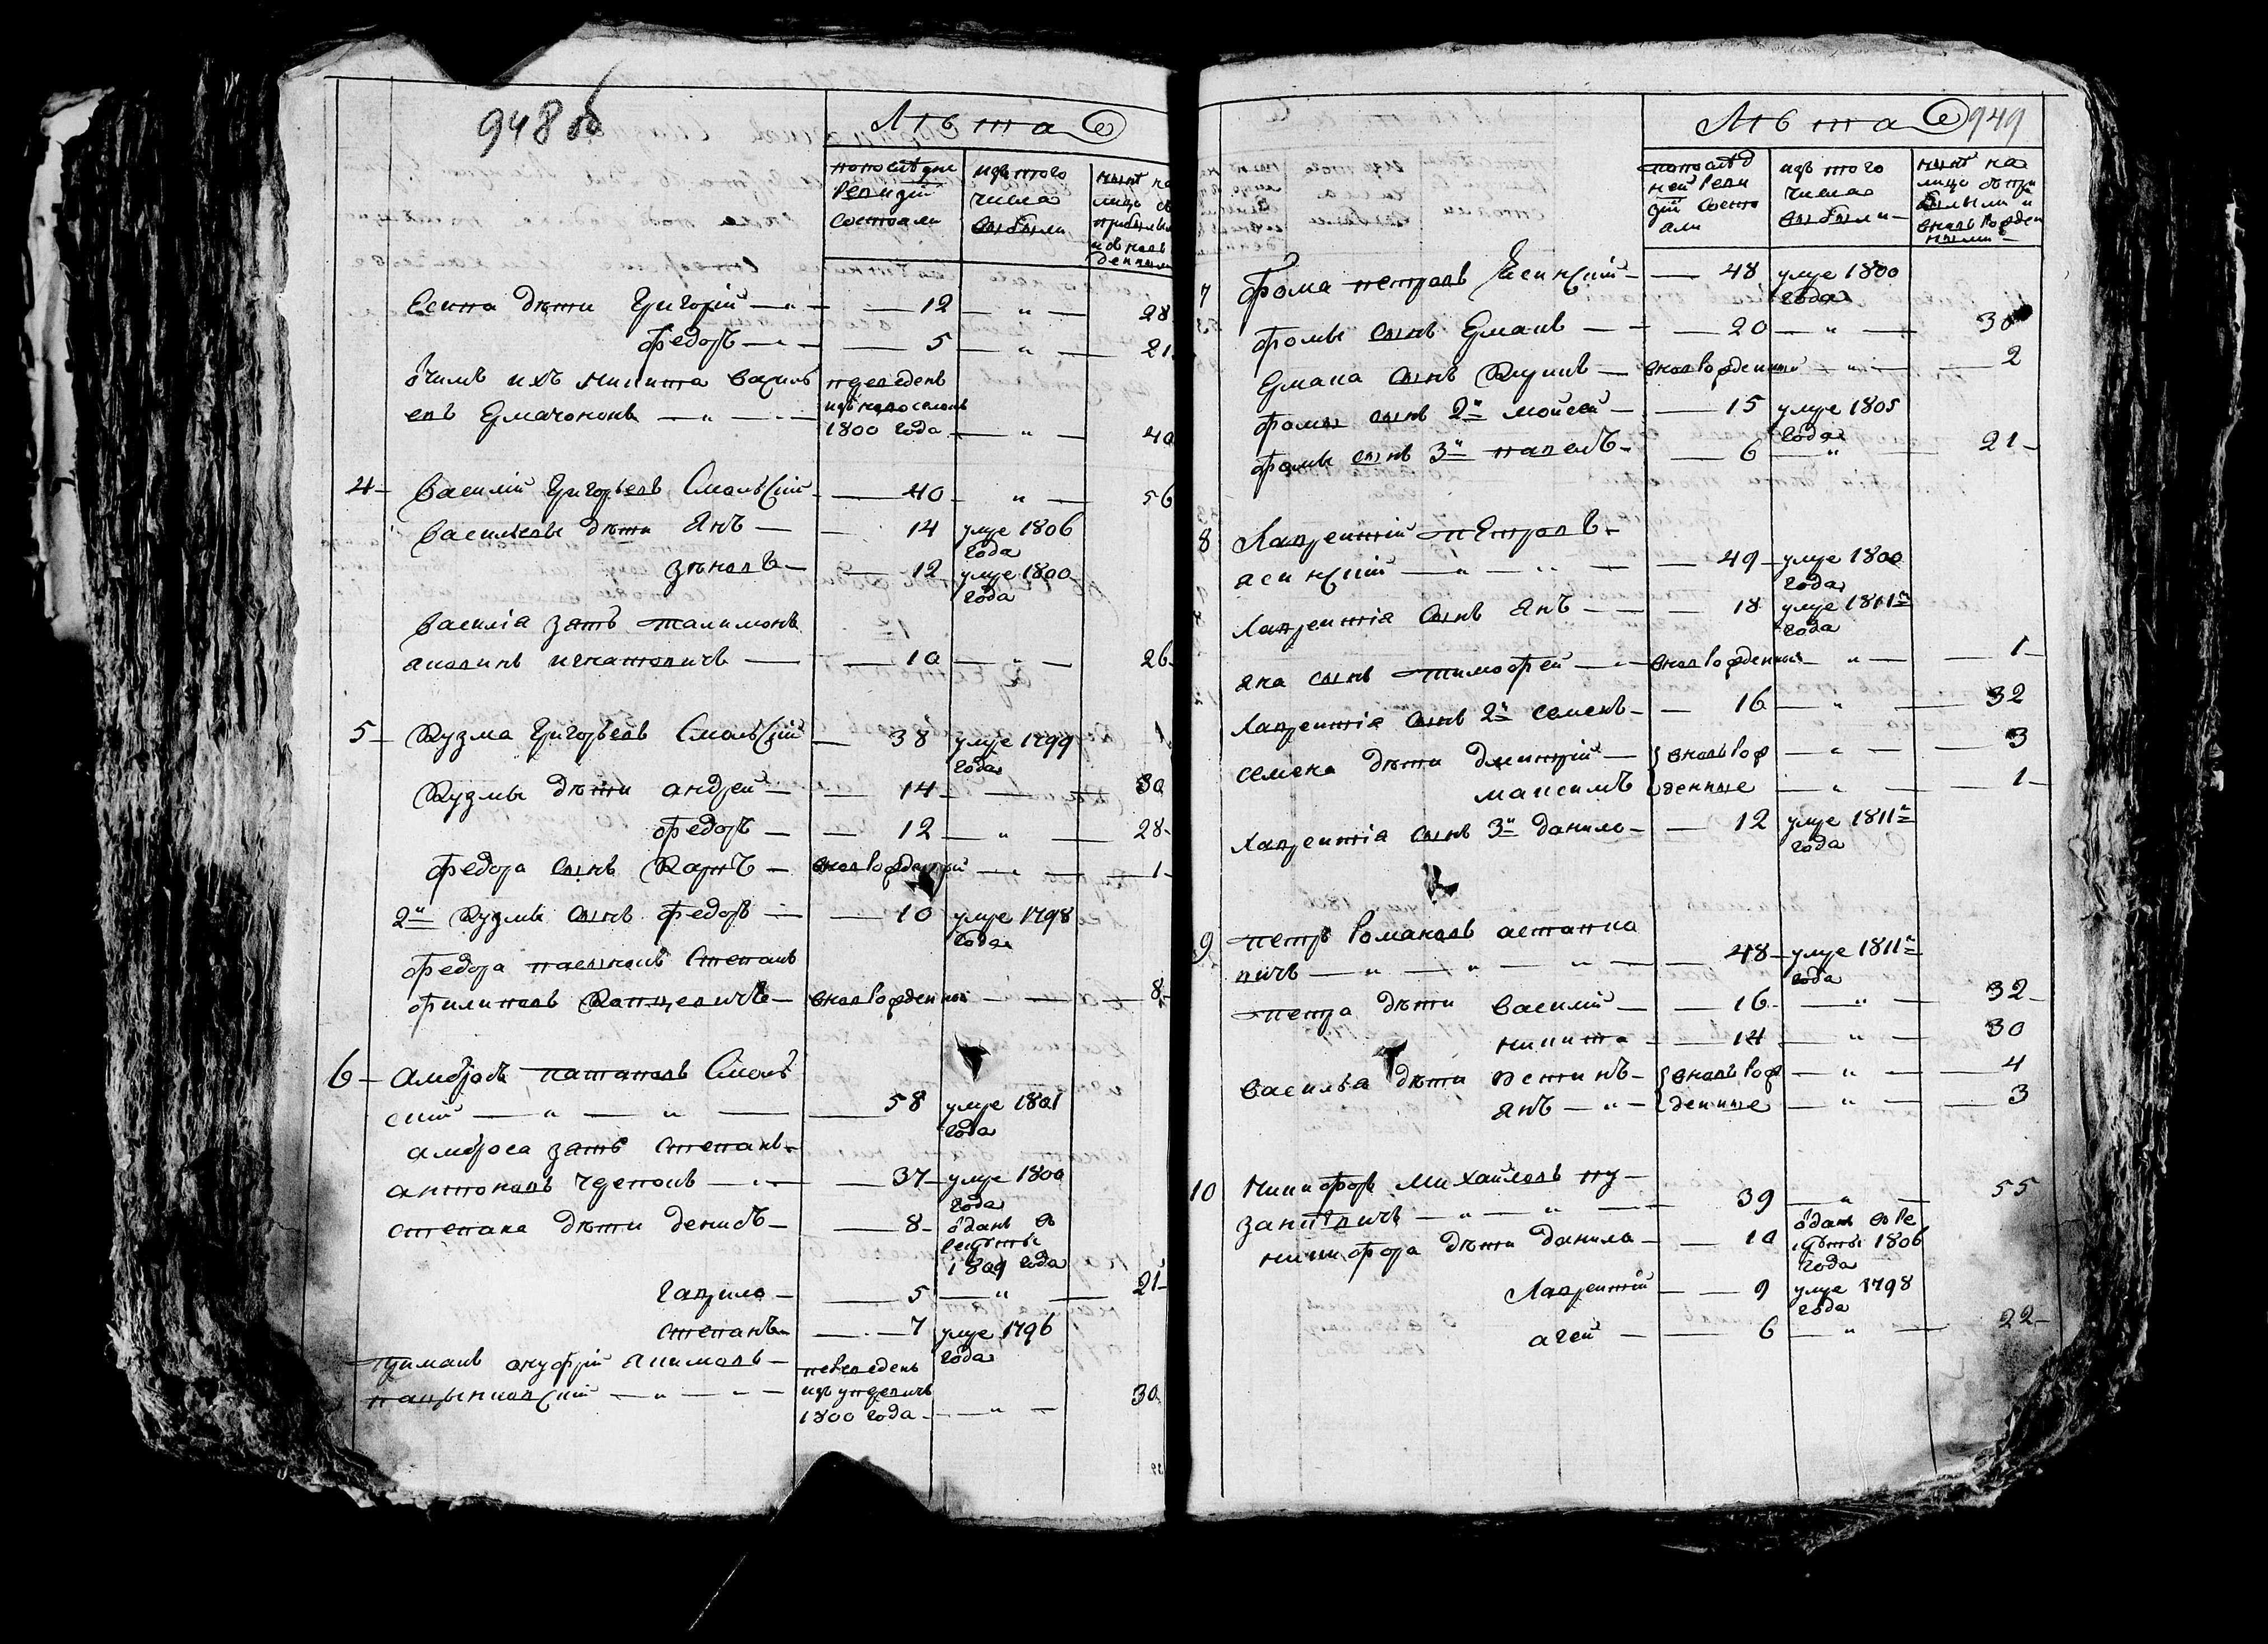 948 об
Лѣта
по последне
ревизiи
состояли
изъ того
числа
выбыли
нынѣ на
лицо съ
прибылы
и вновь
денным
Есипа дѣти Григорiй — 12 — „ — 28
Федоръ — 5 — „ — 21
отчимъ ихъ Никита Василь переведенъ
евъ Ермаченокъ — „ — изъ
1800 года — „ — 40
4 — Василiй Григорьевъ Смольскiй — 40 — „ — 56
Васильевы дѣти Янъ — 14 умре 1806
года
Зѣновъ — 12 умре 1800
года
Василiя зять Талимонъ
игнатовичъ — 10 — „ — 26
5 — Кузма Григорьевъ Смольскiй — 38 умре 1799
года
Кузмы дѣти андрей — 14 — — 30
Федоръ — 12 — „ — 28
Федора сынъ Карпъ — вновьрожденный — „ — 1
2й Кузмы сынъ Федоръ — 10 умре 1798
года
Федора пасынокъ Степанъ
Филиповъ — вновьрожденный — — 8
6 — Амбросъ Смоль
скiй — „ — „ — 58 умре 1801
года
амброса зять Степанъ
антоновъ — 37 — умре 1800
года
Степана дѣти Денисъ — 8 — отданъ в
рекруты
1809 года
Гаврило — 5 — „ — 21
Степанъ — 7 умре 1796
года
примакъ онуфрiй Якимовъ — переведенъ
изъ
1800 года — „ — 30
949
Лѣта
по послѣд
ней реви
зiи состо
яли
изъ того
числа
выбыли
нынѣ на
лицо съ при
былыми и
вновь рожден
ными
7 Фома Петровъ Ясинскiй — 48 умре 1800
года
Фомы сынъ Ермакъ — 20 — „ — 36
Ермака сынъ — вновьрожденный — „ — 2
Фомы сынъ 2й Моисей — 15 умре 1805
года
Фомы сынъ 3й Павелъ — 6 — „ — 21
8 Лаврентiй Петровъ
Ясинскiй — „ — „ — 49 — умре 1800
года
Лаврентiя сынъ Янъ — 18 умре 1811го
года
Яна сынъ Тимофей — вновьрожденный — „ — 1
Лаврентiя сынъ 2й Семенъ — 16 — „ — 32
Семена дѣти Дмитрiй — вновьрож — „ — 3
Максимъ денные — „ — 1
Лаврентiя сынъ 3й Данило — 12 умре 1811го
года
9 Петръ Романовъ астапко
вичъ — „ — „ — „ — 48 — умре 1811го
года
Петра дѣти Василiй — 16 — „ — 32
Никита — 14 — „ — 30
Василья дѣти Устинъ — вновьрож — „ — 4
Янъ — „ — денные — „ — 3
10 Никифоръ Михайловъ пу
заневичъ — „ — „ — 39 — „ — 55
Никифора дѣти Данила — 10 отданъ в ре
круты 1806
года
Лаврентiй — 9 умре 1798
года
Агей — 6 — „ — 22